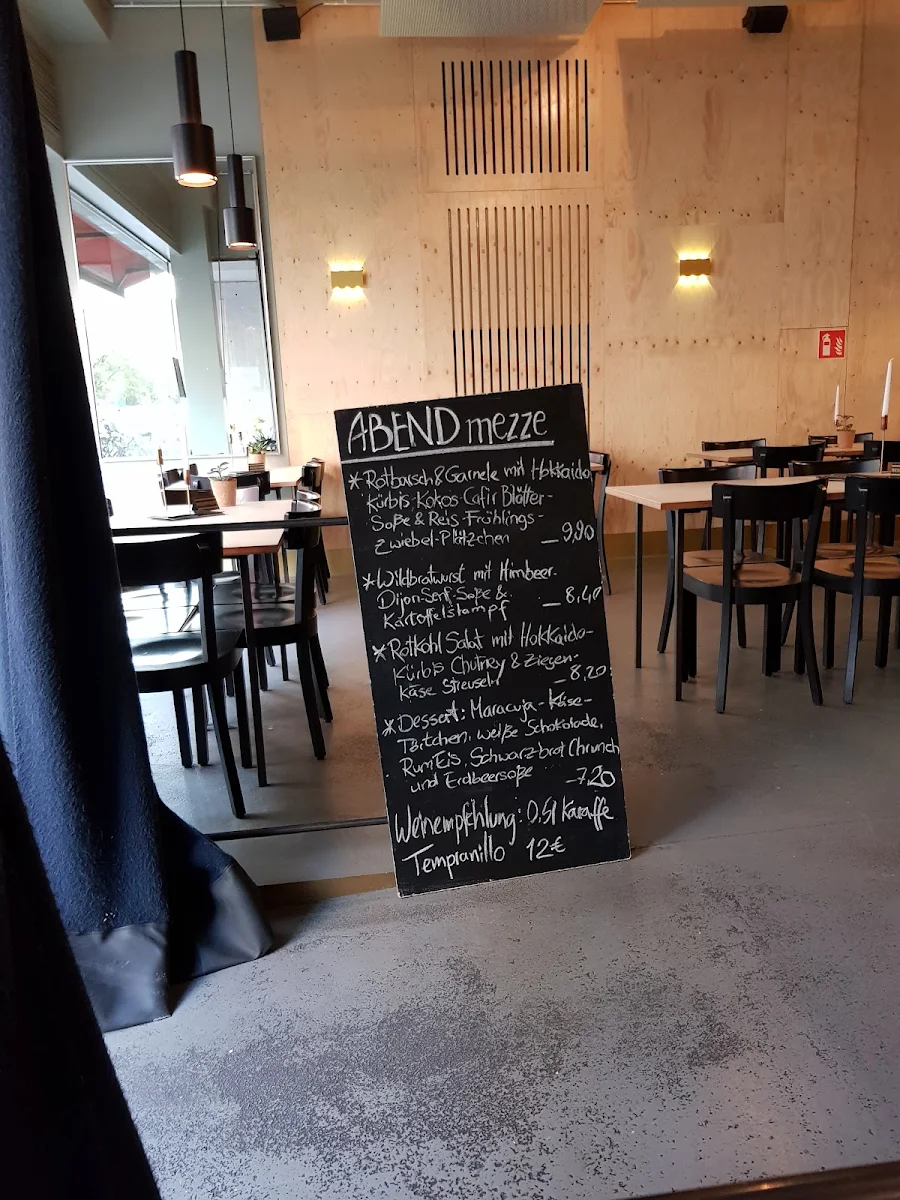 ABEND mezze
* Rotbarsch & Garnele mit Hokkaido
Kürbis-Kokos-Cafir Blätter-
Soße & Reis-Frühlings-
Zwiebel-Plätzchen — 9,90
* Wildbratwurst mit Himbeer-
Dijon-Senf-Soße &
Kartoffelstampf — 8,40
* Rotkohl Salat mit Hokkaido-
Kürbis Chutney & Ziegen-
Käse Streuseln — 8,20
* Dessert: Maracuja-Käse-
Törtchen, weiße Schokolade,
RumEis, Schwarzbrot Chrunch
und Erdbeersoße — 7,20
Weinempfehlung: 0,5l Karaffe
Tempranillo 12€